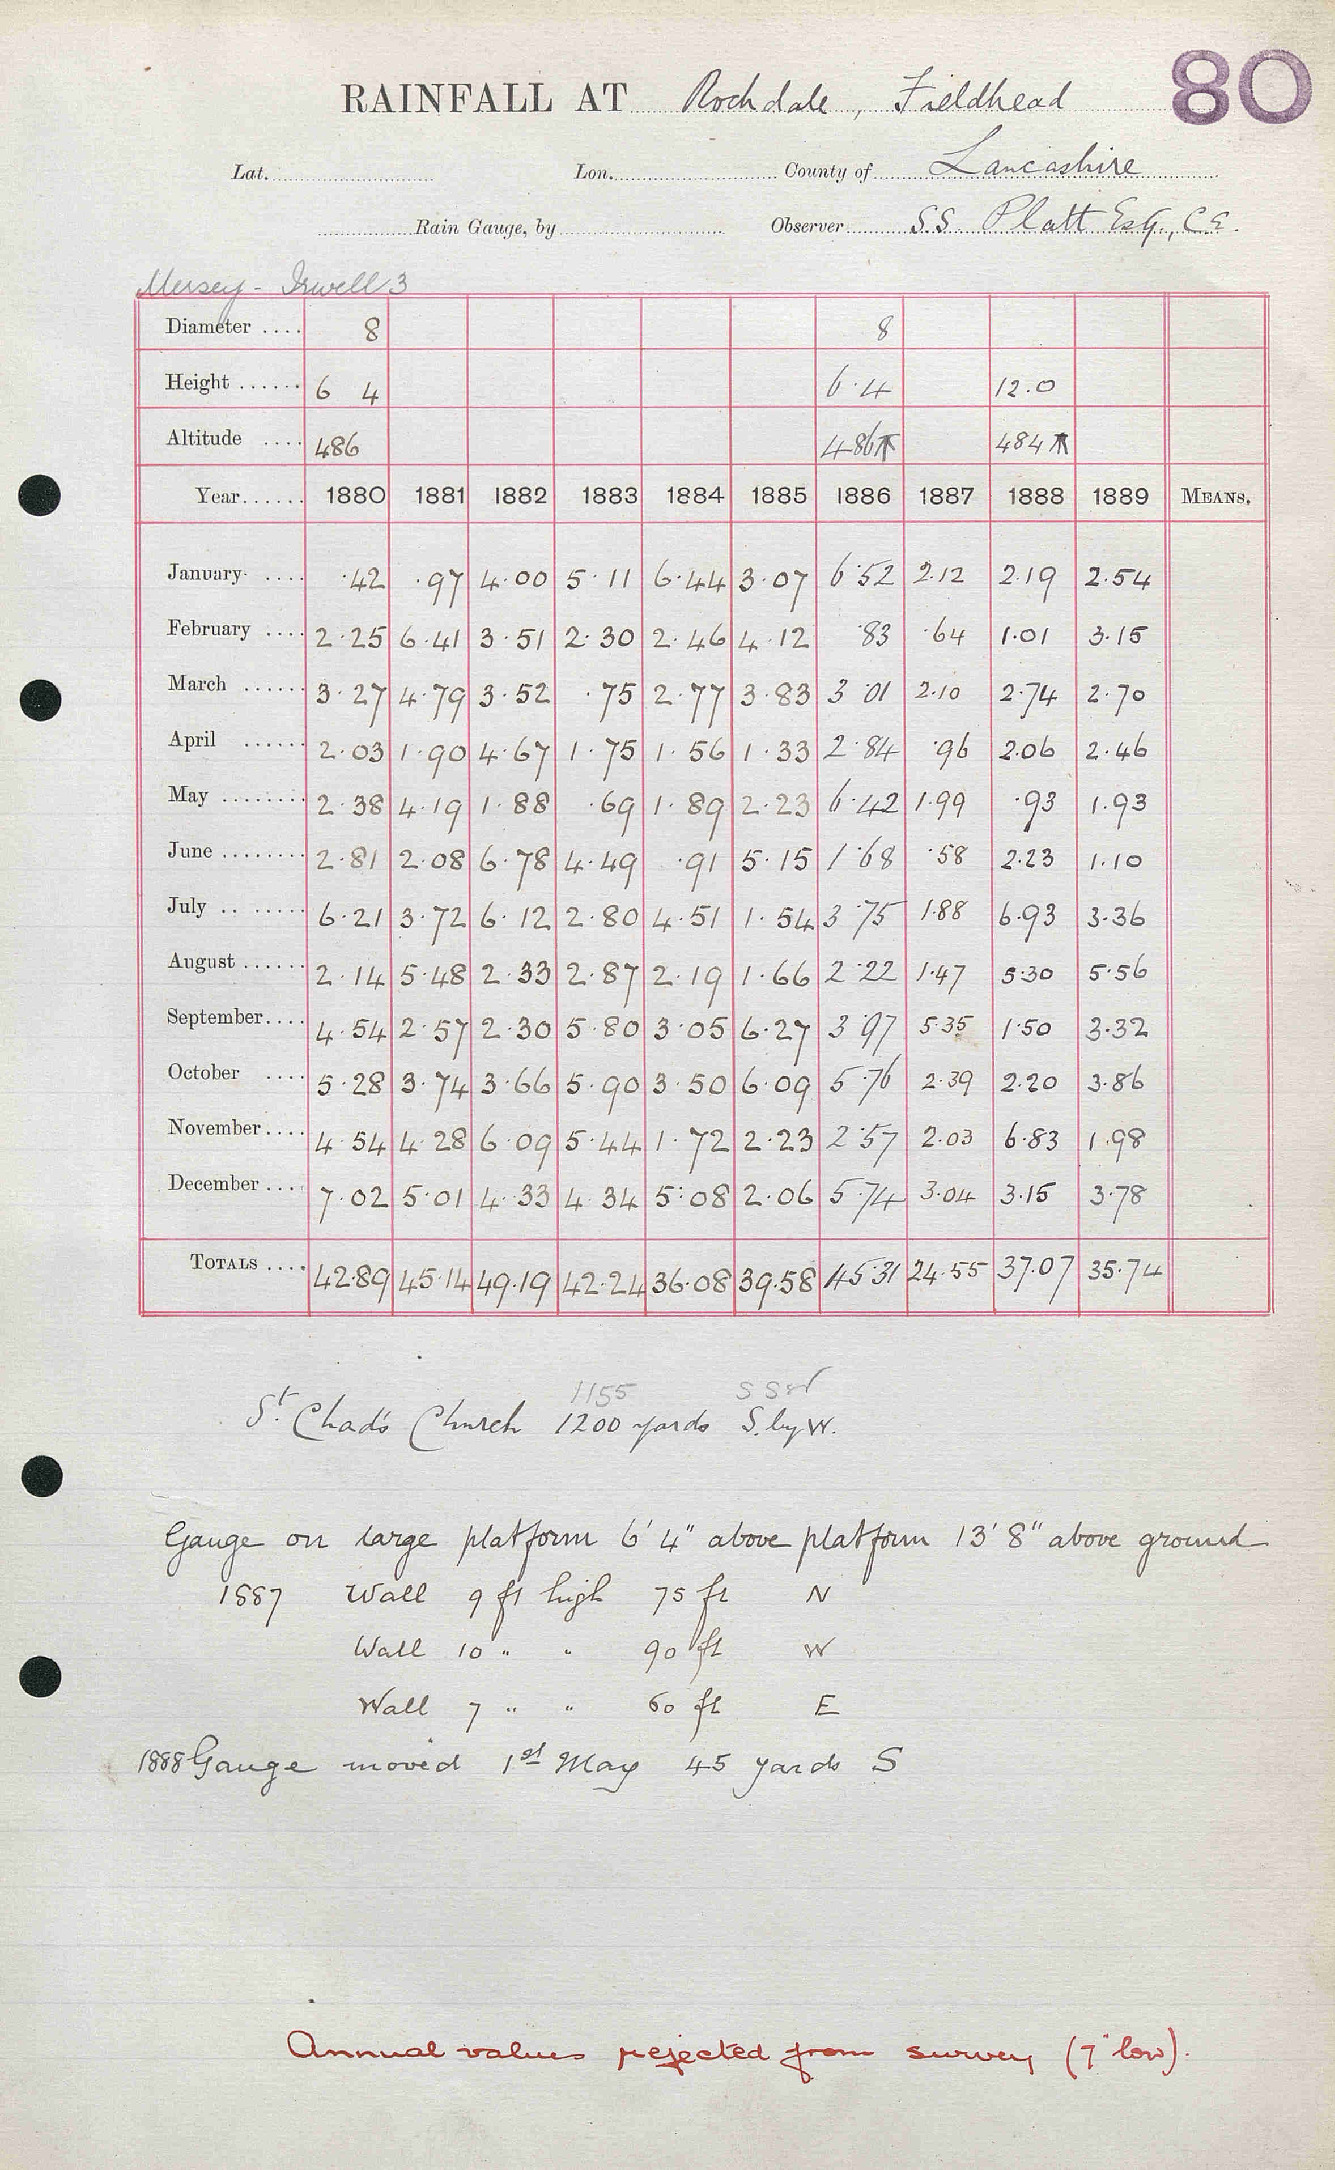 80
RAINFALL AT Rochdale, Fieldhead
Lat. Lon. County of Lancashire
Rain Gauge, by Observer S.S. Platt Esq., C.E.
Mersey - Irwell 3
Diameter .... 8 8
Height ...... 6 4 6.4 12.0
Altitude .... 486 486 484
Year...... 1880 1881 1882 1883 1884 1885 1886 1887 1888 1889 MEANS.
January .... .42 .97 4.00 5.11 6.44 3.07 6.52 2.12 2.19 2.54
February .... 2.25 6.41 3.51 2.30 2.46 4.12 .83 .64 1.01 3.15
March ...... 3.27 4.79 3.52 .75 2.77 3.83 3.01 2.10 2.74 2.70
April ...... 2.03 1.90 4.67 1.75 1.56 1.33 2.84 .96 2.06 2.46
May ........ 2.38 4.19 1.88 .69 1.89 2.23 6.42 1.99 .93 1.93
June ........ 2.81 2.08 6.78 4.49 .91 5.15 1.68 .58 2.23 1.10
July ........ 6.21 3.72 6.12 2.80 4.51 1.54 3.75 1.88 6.93 3.36
August ...... 2.14 5.48 2.33 2.87 2.19 1.66 2.22 1.47 5.30 5.56
September.... 4.54 2.57 2.30 5.80 3.05 6.27 3.97 5.35 1.50 3.32
October .... 5.28 3.74 3.66 5.90 3.50 6.09 5.76 2.39 2.20 3.86
November.... 4.54 4.28 6.09 5.44 1.72 2.23 2.57 2.03 6.83 1.98
December .... 7.02 5.01 4.33 4.34 5.08 2.06 5.74 3.04 3.15 3.78
TOTALS .... 42.89 45.14 49.19 42.24 36.08 39.58 45.31 24.55 37.07 35.74
1155 SSW
St. Chad's Church 1200 yards S. by W.
Gauge on large platform 6' 4" above platform 13' 8" above ground
1887 Wall 9 ft high 75 ft N
Wall 10 " " 90 ft W
Wall 7 " " 60 ft E
1888 Gauge moved 1st May 45 yards S
Annual values rejected from survey (7" low).